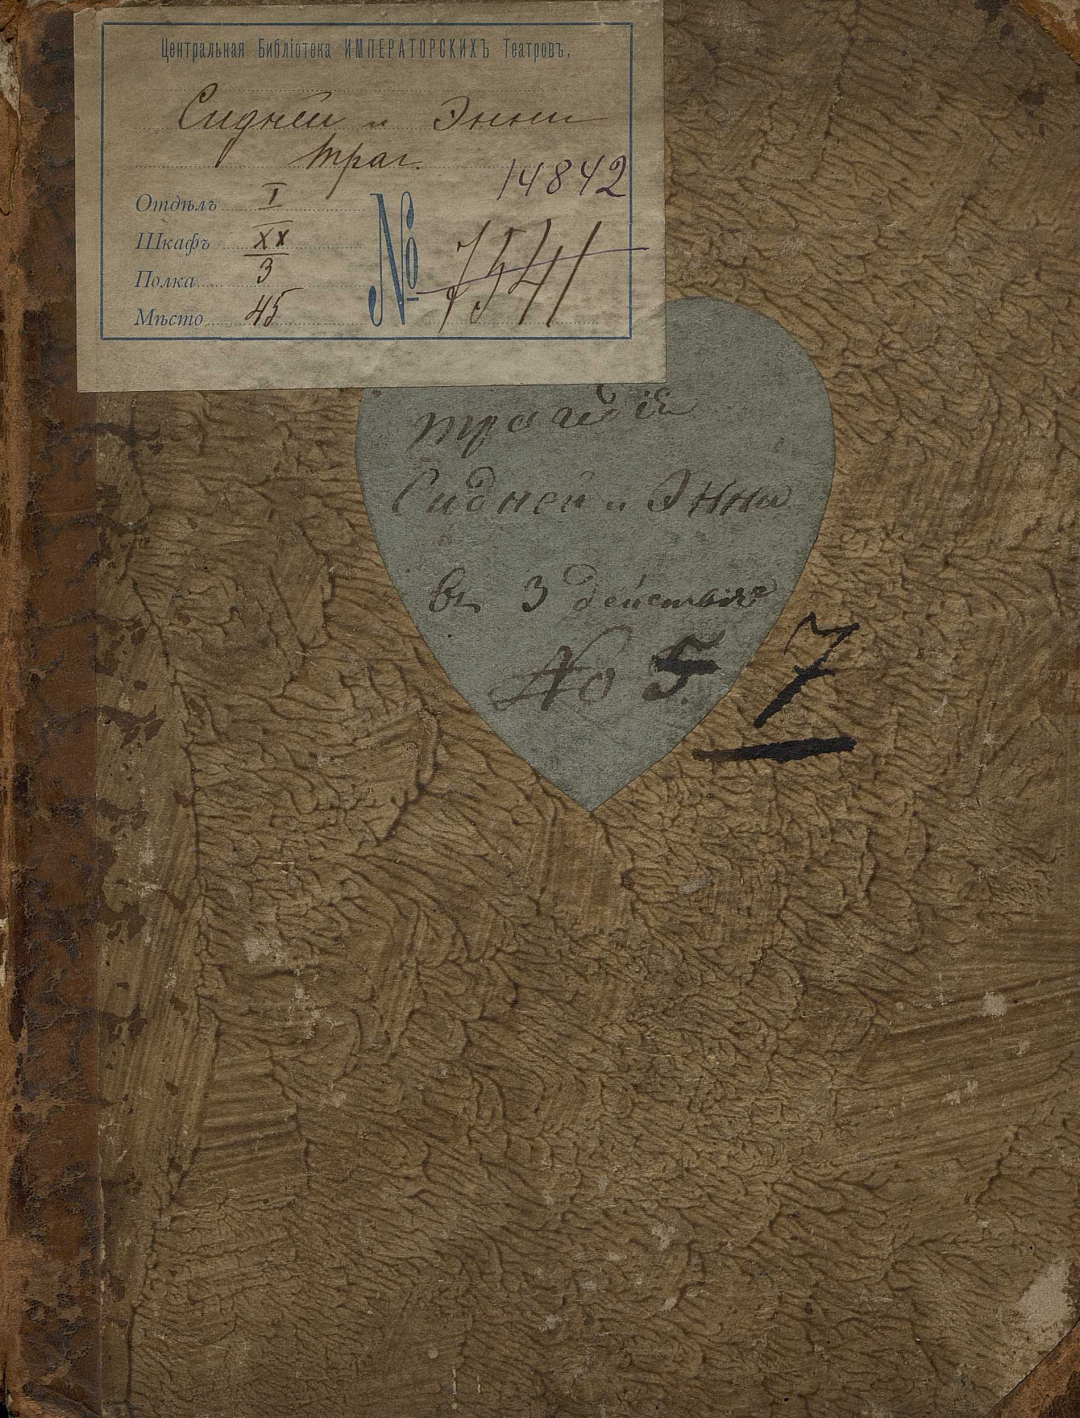 Центральная Библіотека ИМПЕРАТОРСКИХЪ Театровъ.
Сидней и Энни
траг.
14842
Отдѣлъ I
Шкафъ XX
Полка 3
Мѣсто 45
№ 7541
трагедія
Сидней и Энни
въ 3 действіяхъ
No 5. 7